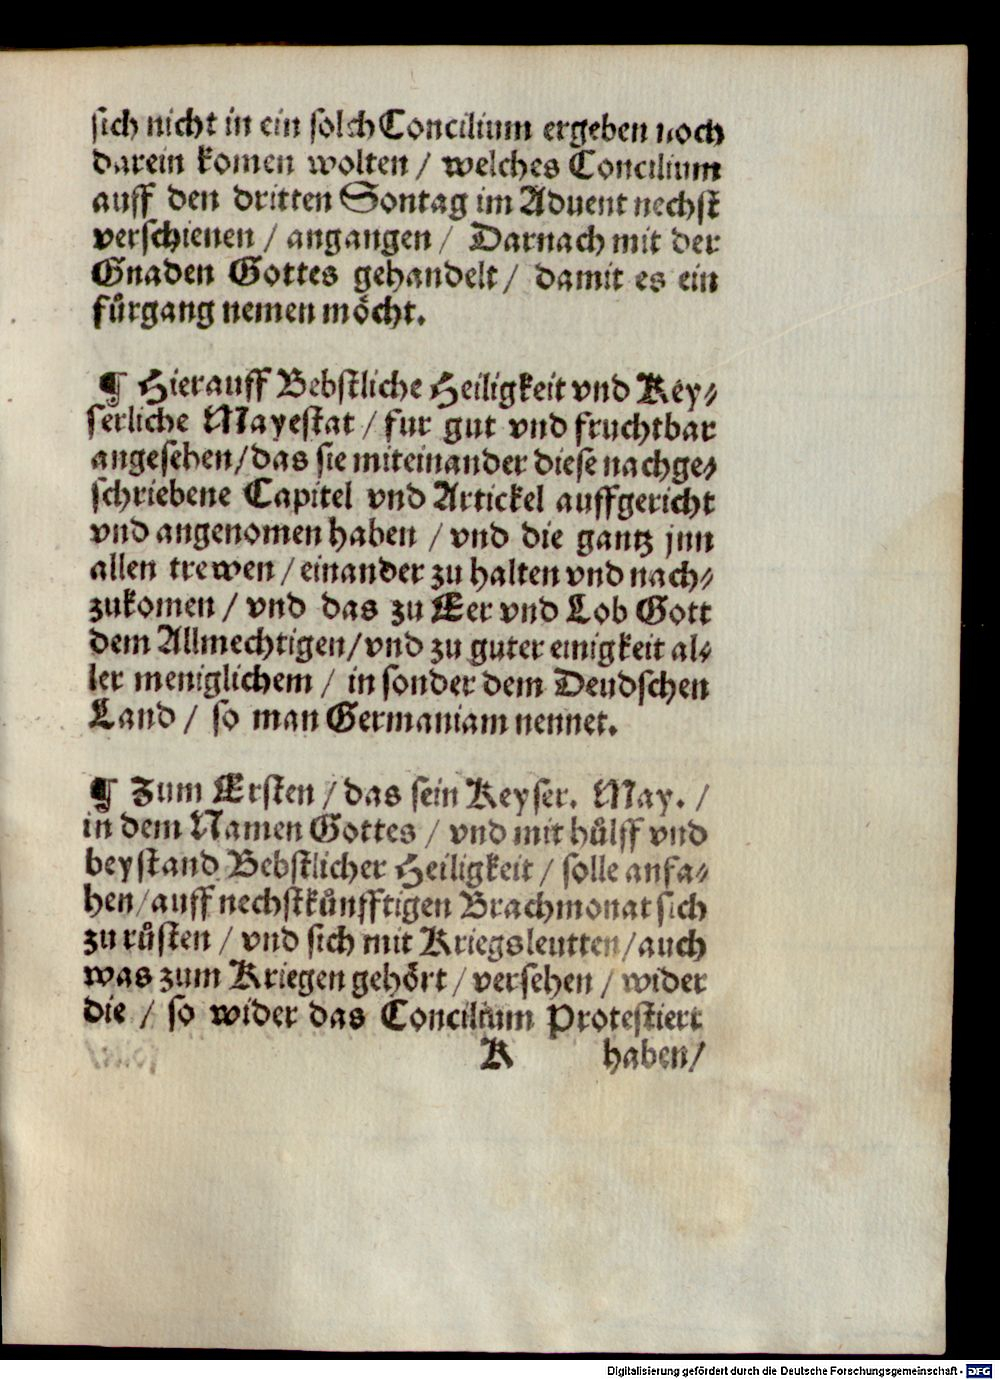 sich nicht in ein solch Concilium ergeben noch
darein komen wolten / welches Concilium
auff den dritten Sontag im Aduent nechst
verschienen / angangen / Darnach mit der
Gnaden Gottes gehandelt / damit es ein
fůrgang nemen mȯcht.
¶ Hierauff Bebstliche Heiligkeit vnd Key⸗
serliche Mayestat / fur gut vnd fruchtbar
angesehen/das sie miteinander diese nachge⸗
schriebene Capitel vnd Artickel auffgericht
vnd angenomen haben / vnd die gantz jnn
allen trewen / einander zu halten vnd nach⸗
zukomen / vnd das zu Eer vnd Lob Gott
dem Allmechtigen/vnd zu guter einigkeit al⸗
ler meniglichem / in sonder dem Deudschen
Land / so man Germaniam nennet.
¶ Zum Ersten / das sein Keyser. May. /
in dem Namen Gottes / vnd mit hůlff vnd
beystand Bebstlicher Heiligkeit / solle anfa⸗
hen/auff nechstkůnfftigen Brachmonat sich
zu růsten / vnd sich mit Kriegsleutten/auch
was zum Kriegen gehȯrt / versehen / wider
die / so wider das Concilium Protestiert
K haben/
Digitalisierung gefördert durch die Deutsche Forschungsgemeinschaft - DFG